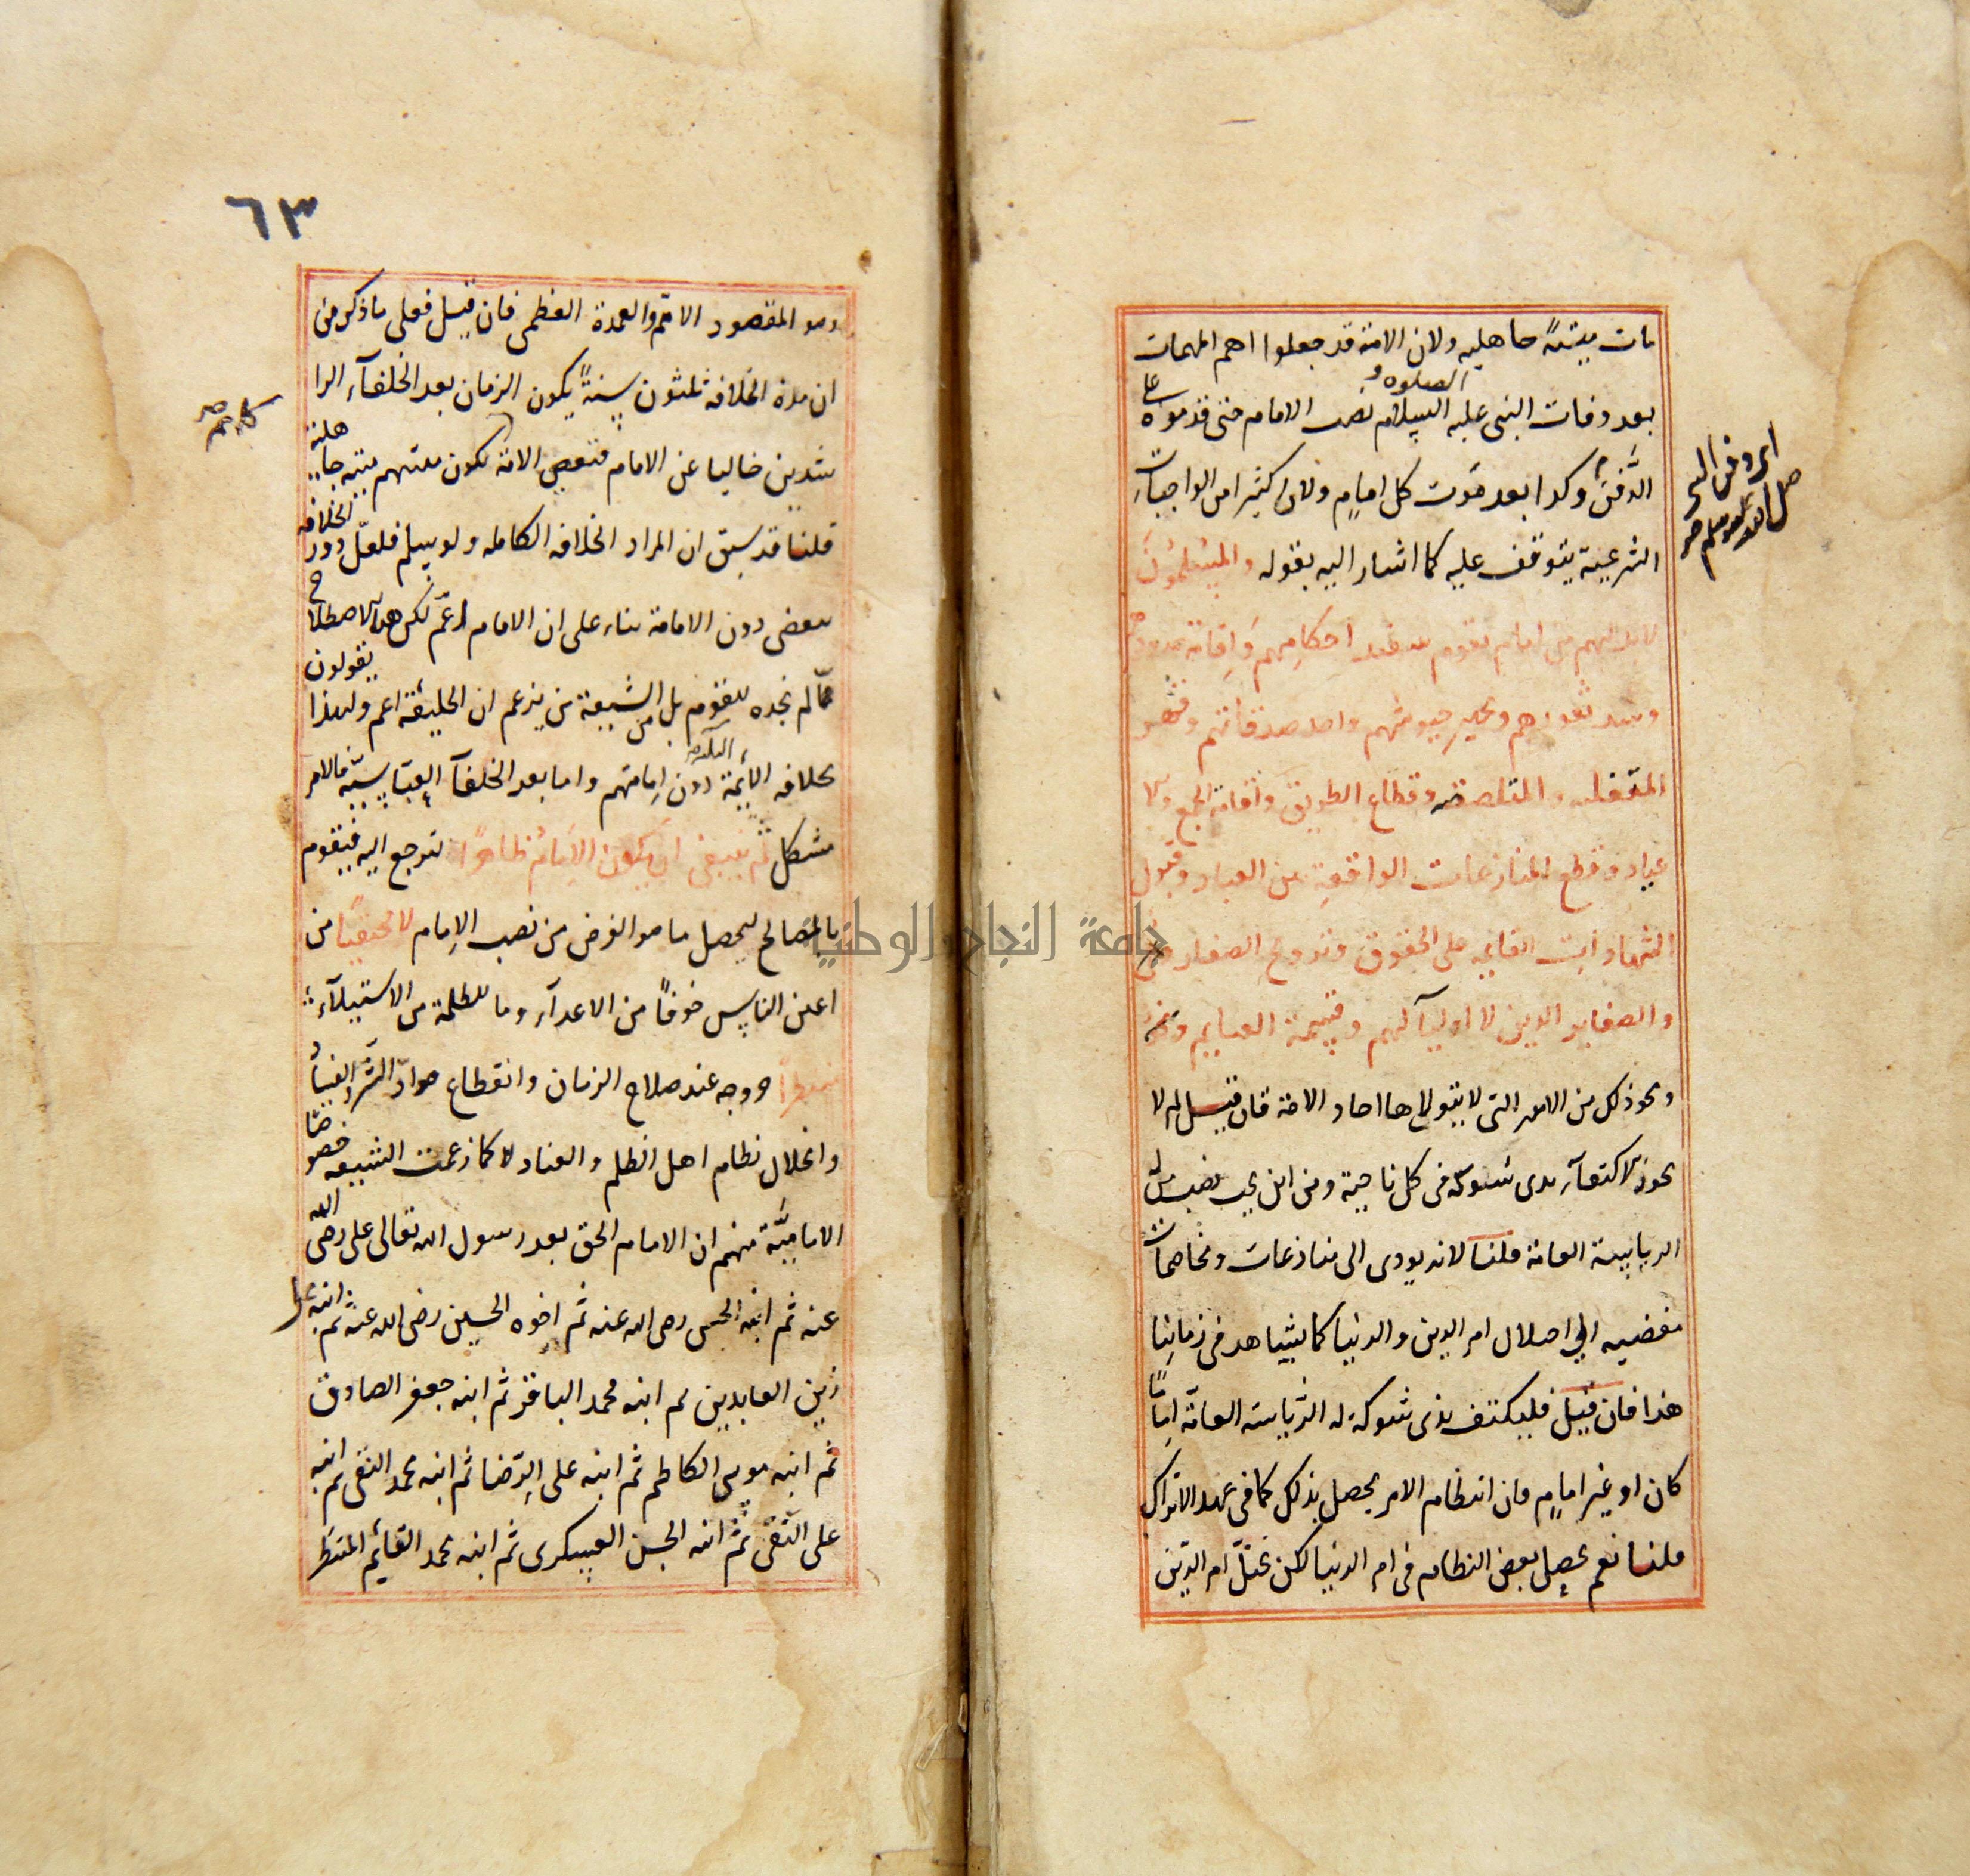 مات ميتةً جاهليه ولان الامة قد جعلوا اهم المهمات
بعد وفات النبى عليه الصلوه و السلام نصب الامام حتى قدموه على
الدَّفن وكذا بعد موت كل امامٍ ولان كثيرا من الواجبات
الشرعية يتوقف عليه كما اشار اليه بقوله والمسلمون
لابد لهم من امام يقوم بتنفيذ احكامِهم وَاِقامة حدودهم
وسد ثغورهم وتجهيز جيوشهم واخذ صدقاتهم وقهر
المتغلبه والمتلصصه وقطاع الطريق واقامة الجمع والا
عياد وقطع المنازعات الواقعة بين العباد وقبول
الشهادات القايمه على الحقوق وتزويج الصغار
والصغاير الذين لا اوليآ لهم وقسمة الغنايم
ونحو ذلك من الامور التى لا يتولاها احاد الامة فان قيل لم لا
يجوز الاكتفآء بذى شوكة فى كل ناحية ومن اين يجب نصب من له
الرياسة العامة قلنا لانه يودى الى منازعات ومخاصمات
مفضيه الى اختلال امر الدين والدنيا كما يشاهد فى زماننا
هذا فان قيل فليكتف بذى شوكة له الرياسه العامّة امامًا
كان او غير امامٍ فان انتظام الامر يحصل بذلك كما فى عهد الاتراك
قلنا نعم يحصل بعض النظام فى امر الدنيا لكن يختلّ امر الدّين
٦٣
وهو المقصود الاهمّ والعمدة العظمى فان قيل فعلى ما ذكر من
ان مدة الخلافة ثلثون سنةً يكون الزمان بعد الخلفآء الرا
شدين خاليا عن الامام فتعصى الامة وتكون ميتتهم ميتة جاهلية
قلنا قد سبق ان المراد الخلافه الكامله ولو سلم فلعلّ دور الخلافه
تنقضى دون الامامة بناء على ان الامام اعمّ لكن هذا الاصطلاح
ممّا لم نجده للقوم بل من الشيعة من يزعم ان الخليفة اعم ولهذا يقولون
بخلافه الائمة الثلثه دون اِمامتهم واما بعد الخلفآ العبّاسيّه فالامر
مشكل ثم ينبغى ان يكون الامام ظاهرًا ليرجع اليه فيقوم
بالمصالح ليحصل ما هو الغرض من نصب الاِمام لا مختفيًا من
اعين الناس خوفًا من الاعدآء وما للظلمة من الاستيلآء
منتظراً خروجه عند صلاح الزمان وانقطاع موادّ الشّرّ والفساد
وانحلال نظام اهل الظلم والعناد لا كما زعمت الشيعه خصوصًا
الاماميَّة منهم ان الامام الحق بعد رسول الله تعالى على رضى الله
عنه ثم ابنه الحسن رضى الله عنه ثم اخوه الحسين رضى الله عنه ثم ابنه على
زين العابدين ثم ابنه محمد الباقر ثم ابنه جعفر الصادق
ثم ابنه موسى الكاظم ثم ابنه على الرّضا ثم ابنه محمد التقى ثم ابنه
على النّقى ثمّ ابنه الحسن العسكرى ثم ابنه محمد القايم المنتظر
جامعة النجاح الوطنية